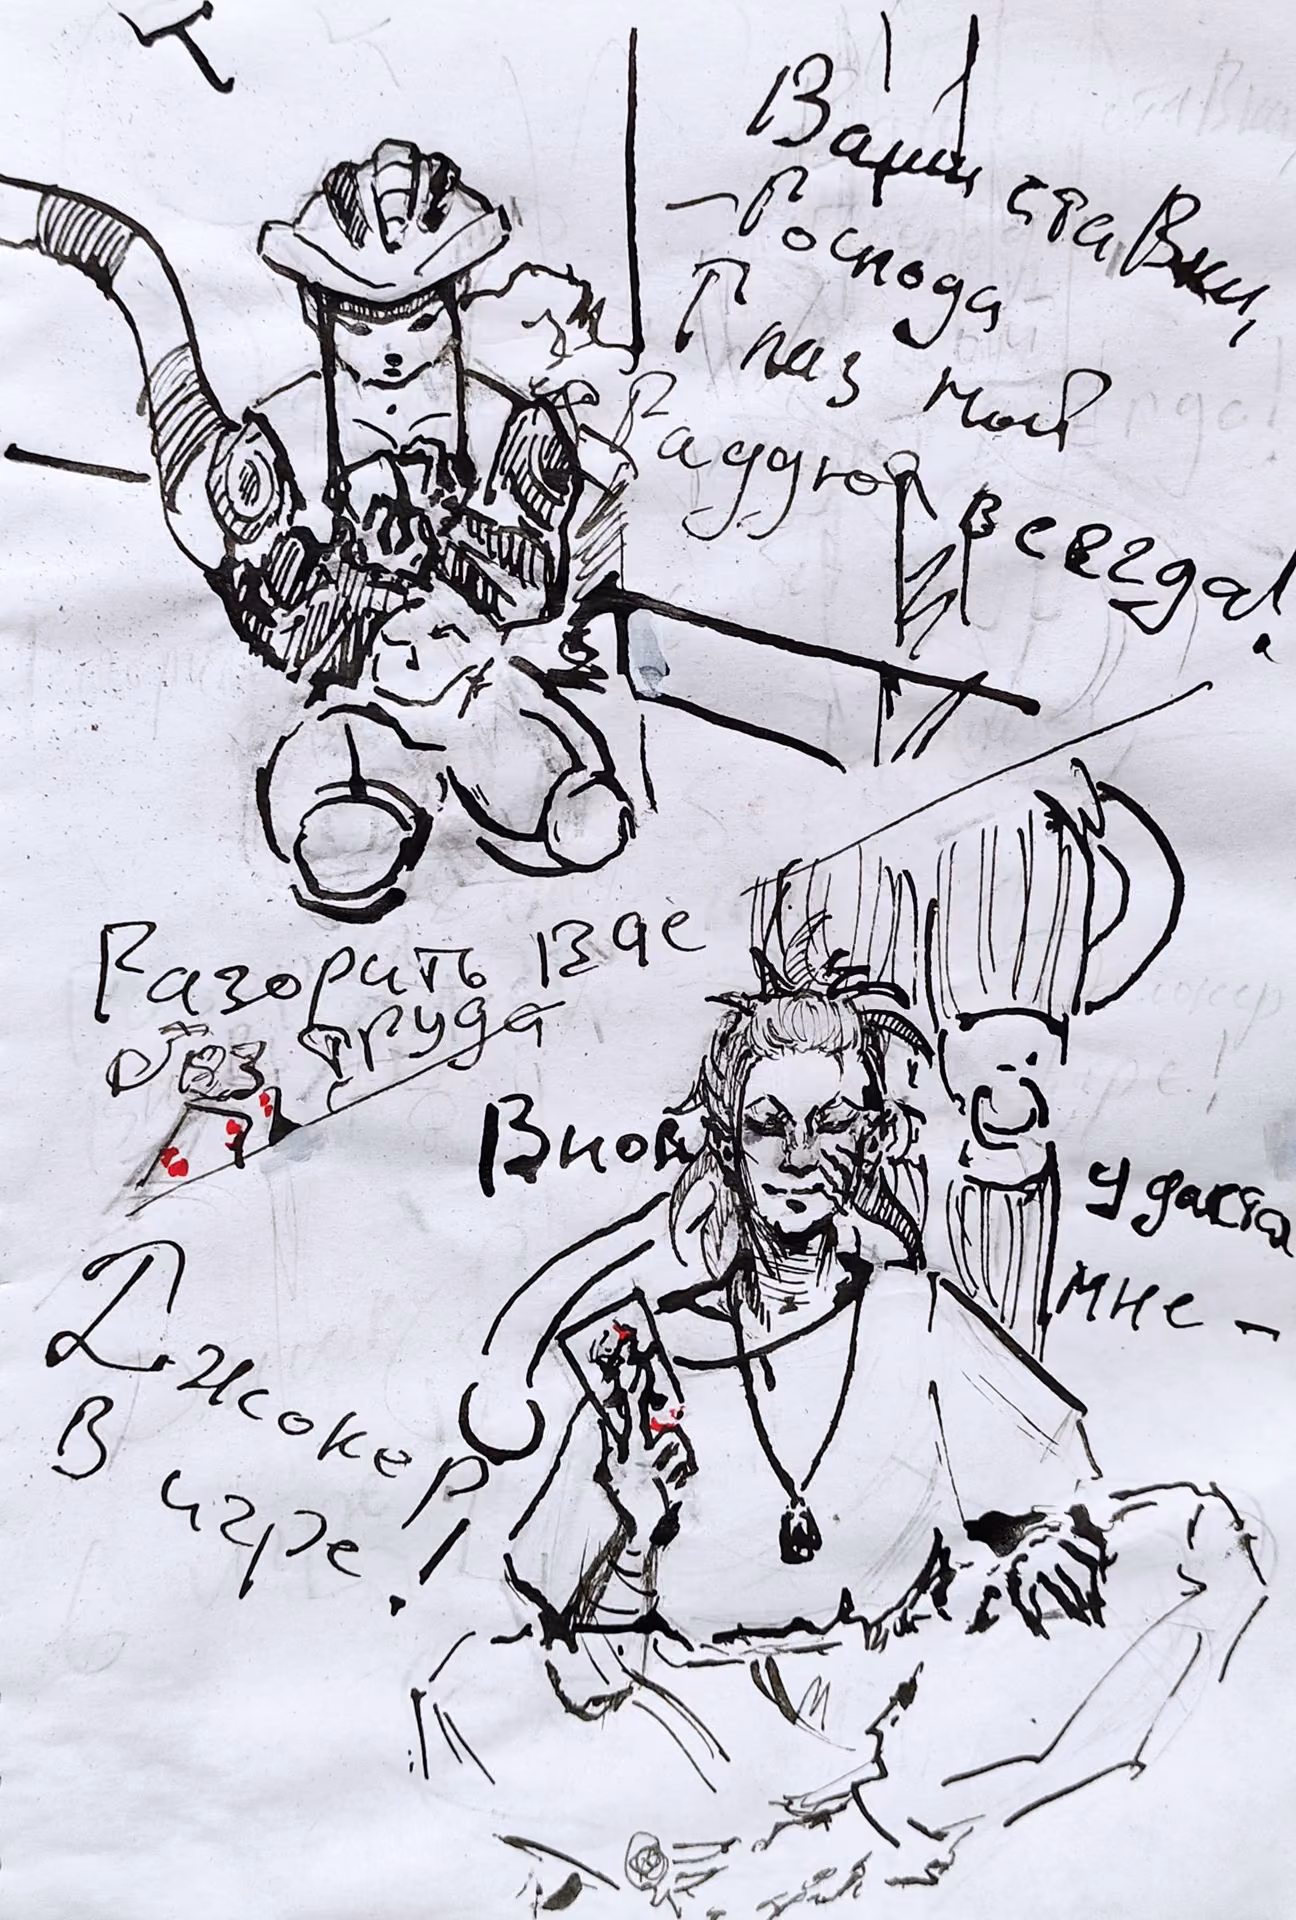 Ваши ставки,
- Господа
Глаз мой
Радуют всегда!
Разорить вас
без труда
Вновь
удастся
мне -
Джокер
в игре!